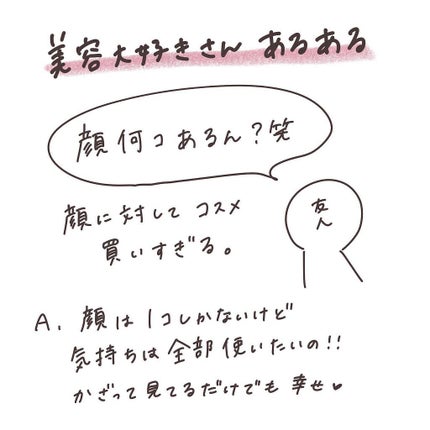 美容大好きさん あるある
顔何コあるん？笑
顔に対して コスメ
買いすぎる。
友人
A. 顔は1コしかないけど
気持ちは全部使いたいの!!
かざって見てるだけでも幸せ♥